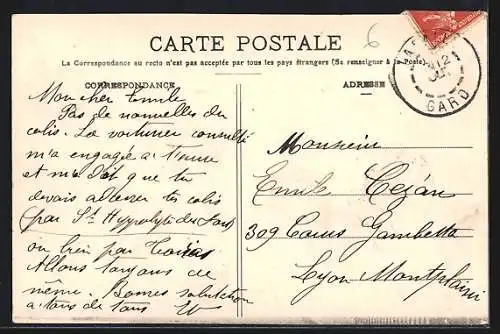 CARTE POSTALE
La Correspondance au recto n'est pas acceptée par tous les pays étrangers (Se renseigner à la Poste)
CORRESPONDANCE
ADRESSE
6
GARD
Mon cher Emile
Pas de nouvelles du
colis. La voiturier consulté
m'a engagée a
et m'a dit que tu
devais adresser tes colis
(par St Hyppolyte du Fort)
ou bien par
Allons tanyons de
même. Bonnes salutation
a tous de tous
Monsieur
Emile Cézan
309 Cours Gambetta
Lyon Montplaisir